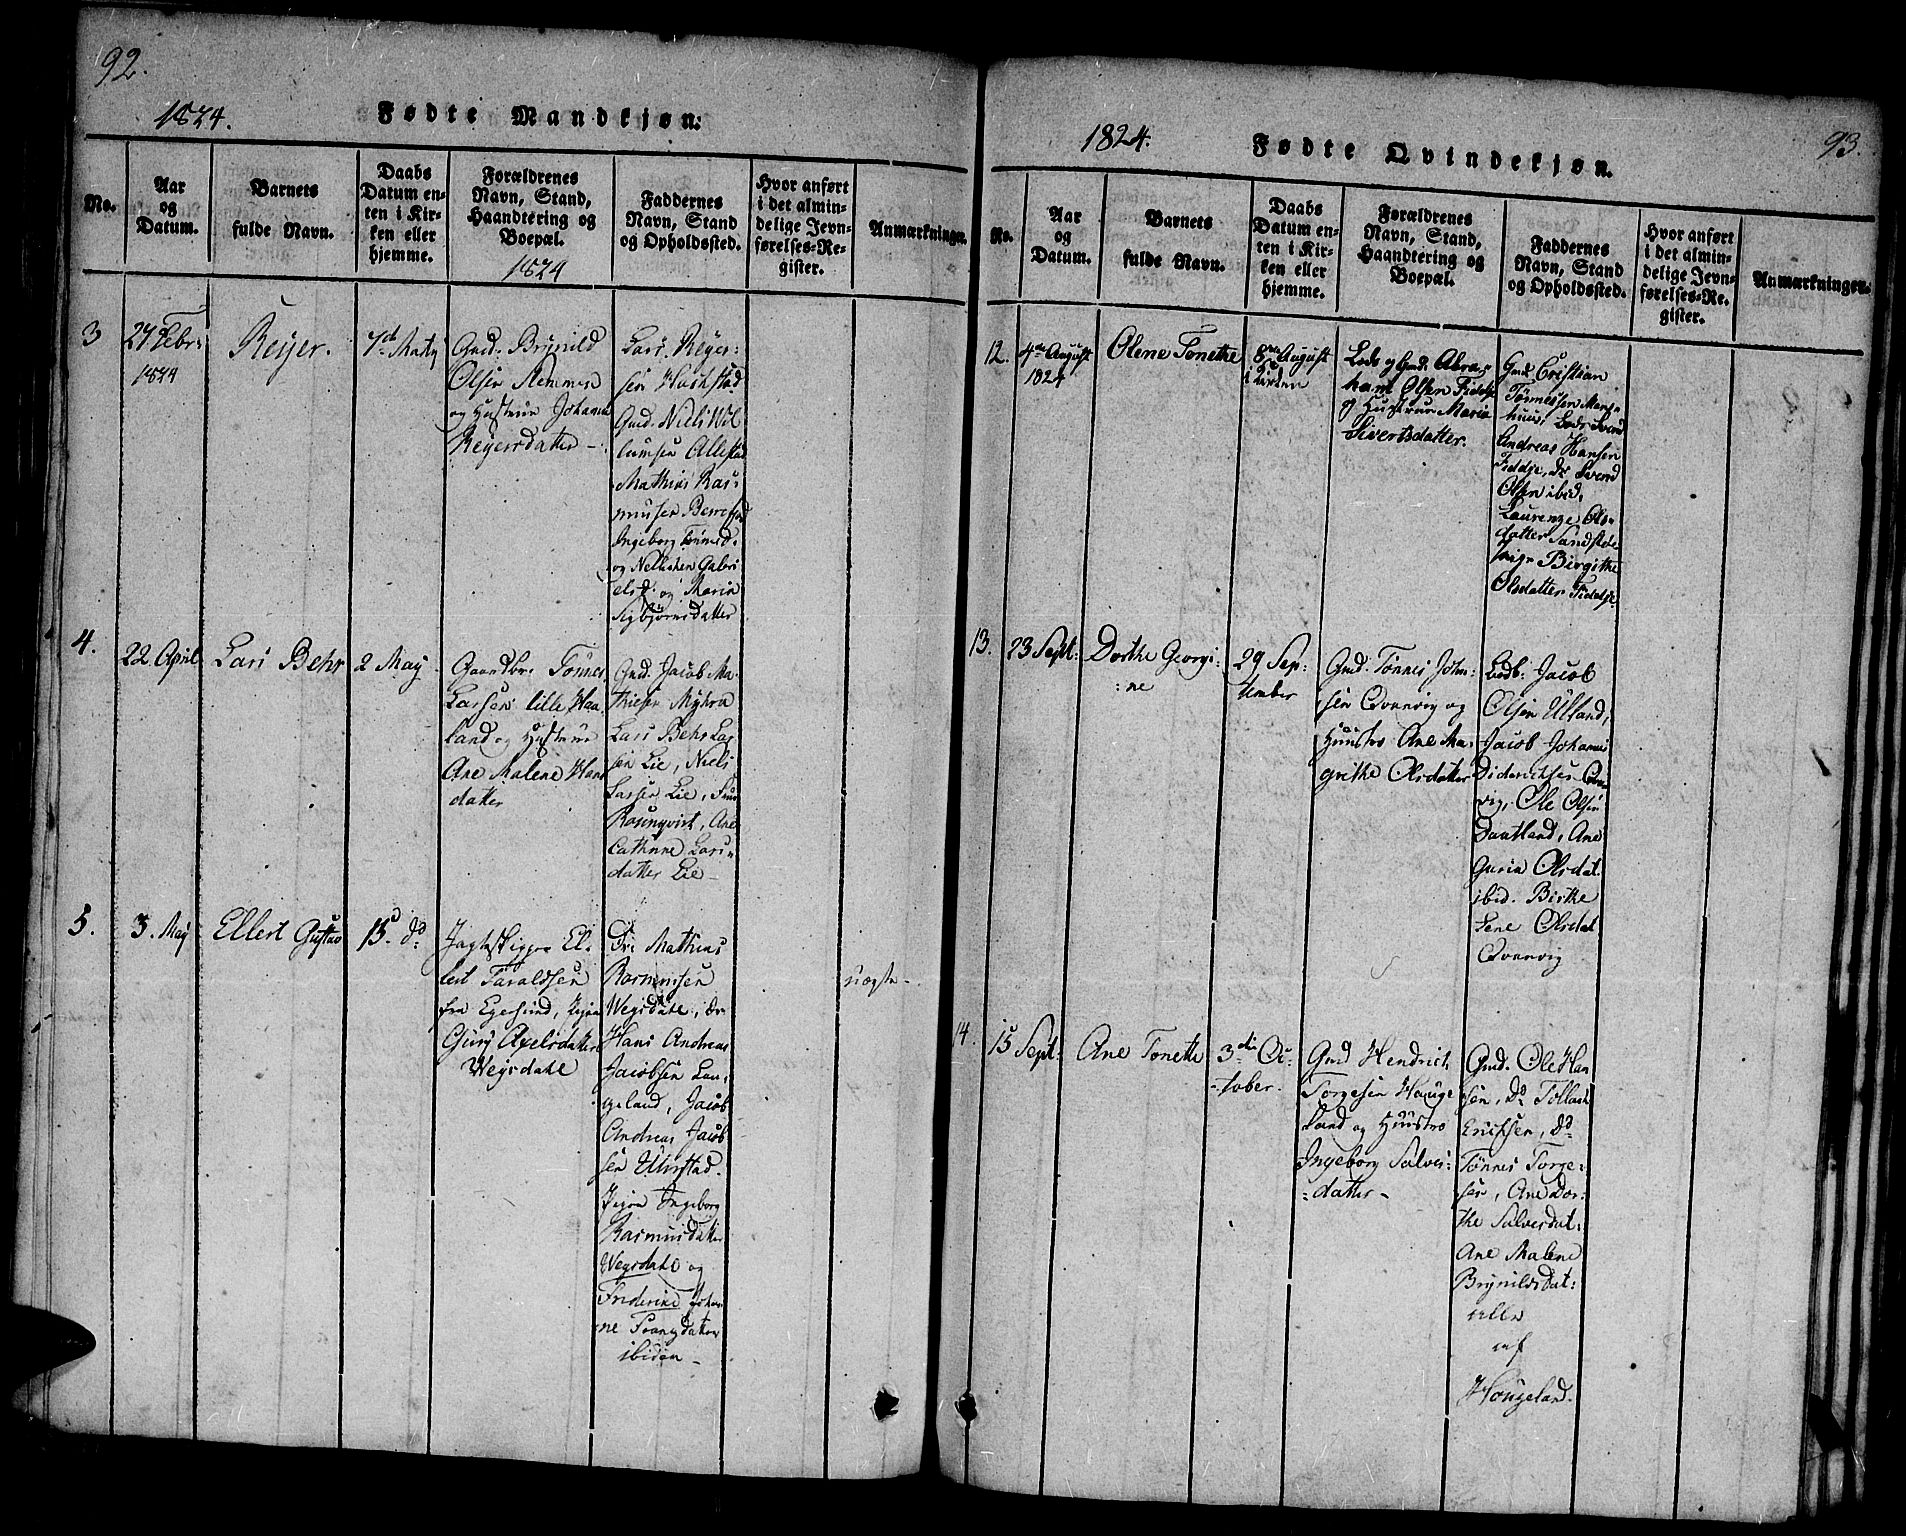 92.
1824.
Fødte Mandkjøn.
No.
Aar
og
Datum.
Barnets
fulde Navn.
Daabs
Datum en-
ten i Kir-
ken eller
hjemme.
Forældrenes
Navn, Stand,
Haandtering og
Boepæl.
1824
Faddernes
Navn, Stand
og Opholdssted.
Hvor anført
i det almin-
delige Jevn-
førelses-Re-
gister.
Anmærkninger.
3
27 Febr:
1824
Reyer.
Gmd. Brynild
Olsen
og Hustrue Johanne
Reyersdatter -
Lars Reyer-
sen
Gmd. Niels Wil
lumsen
Mathias Ras-
musen
Ingeborg
og
og Maria
Sigbjørnsdatter
4.
22 April
Lars Behr
2 May
Gaardbr. Tønnes
Larsen lille Haa-
land og Hustrue
Ane Malene Hans
datter
Gmd. Jacob Ma-
thiesen Myhra
Lars Behr Lar
sen Lie, Niels
Larsen Lie,
Rosenqvist, Ane
Cathrine Lars-
datter Lie -
5.
3. May
Ellert Gustav
15. d:
Jagtskipper El-
lert Taraldsen
fra Egersund, Pigen
Gurj Axelsdatter
Wegsdahl
Dr: Mathias
Rasmussen
Wegsdahl, Dr
Hans Andreas
Jacobsen Lan-
geland, Jacob
Andreas Jacob
sen
Pigen Ingeborg
Rasmusdatter
Wegsdahl og
Frederike
ne Fransdatter
ibiden -
93.
1824.
Fødte Qvindekjøn.
No.
Aar
og
Datum.
Barnets
fulde Navn.
Daabs
Datum en-
ten i Kir-
ken eller
hjemme.
Forældrenes
Navn, Stand,
Haandtering og
Boepæl.
Faddernes
Navn, Stand
og Opholdssted.
Hvor anført
i det almin-
delige Jevn-
førelses-Re-
gister.
Anmærkninger.
12.
4de August
1824
Olene Tonethe
8de August
i Kirken
Lods og Gmd: Abra-
ham Olsen Fidelje
og Hustrue Maria
Sivertsdatter.
Gmd. Cristian
Tønnessen
Lods Svend
Andreas Hansen
Fidelje, ds Svend
Olsen ibid,
Laurenze Ols-
datter
Pige Birgithe
Olsdatter Fidelje
13.
23 Sept:
Dorthe Georgi-
ne
29 Sep-
tember
Gmd. Tønnes John-
sen Qvanvig og
Huustro Ane Ma-
grethe Olsdatter
Jacob
Olsen Ulland,
Jacob Johannes
Diderichsen Qvan-
vig, Ole Olsen
Daatland, Ane
Guria Olsdat.
ibid. Birthe
Lene Olsdat
Qvanvig
14.
15 Sept:
Ane Tonethe
3die Oc-
tober.
Gmd Hendrich
Torgesen Hauge
land og Huustro
Ingeborg Salves-
datter -
Gmd. Ole Han
sen, Ds Tollach
Erichsen, ds
Tønnes Torge-
sen, Ane Dor-
the Salvesdat:
Ane Malene
Brynildsdat:
alle
af
Hougeland.